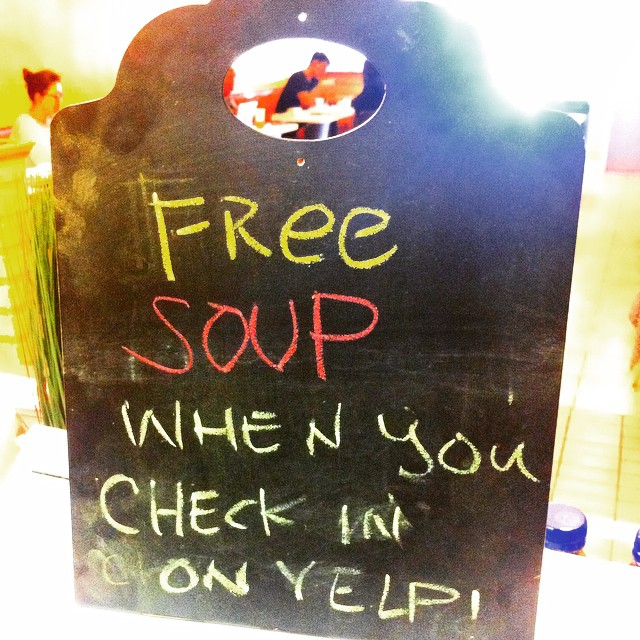 FRee
SOUP
WHEN you
CHECK IN
ON YELP!